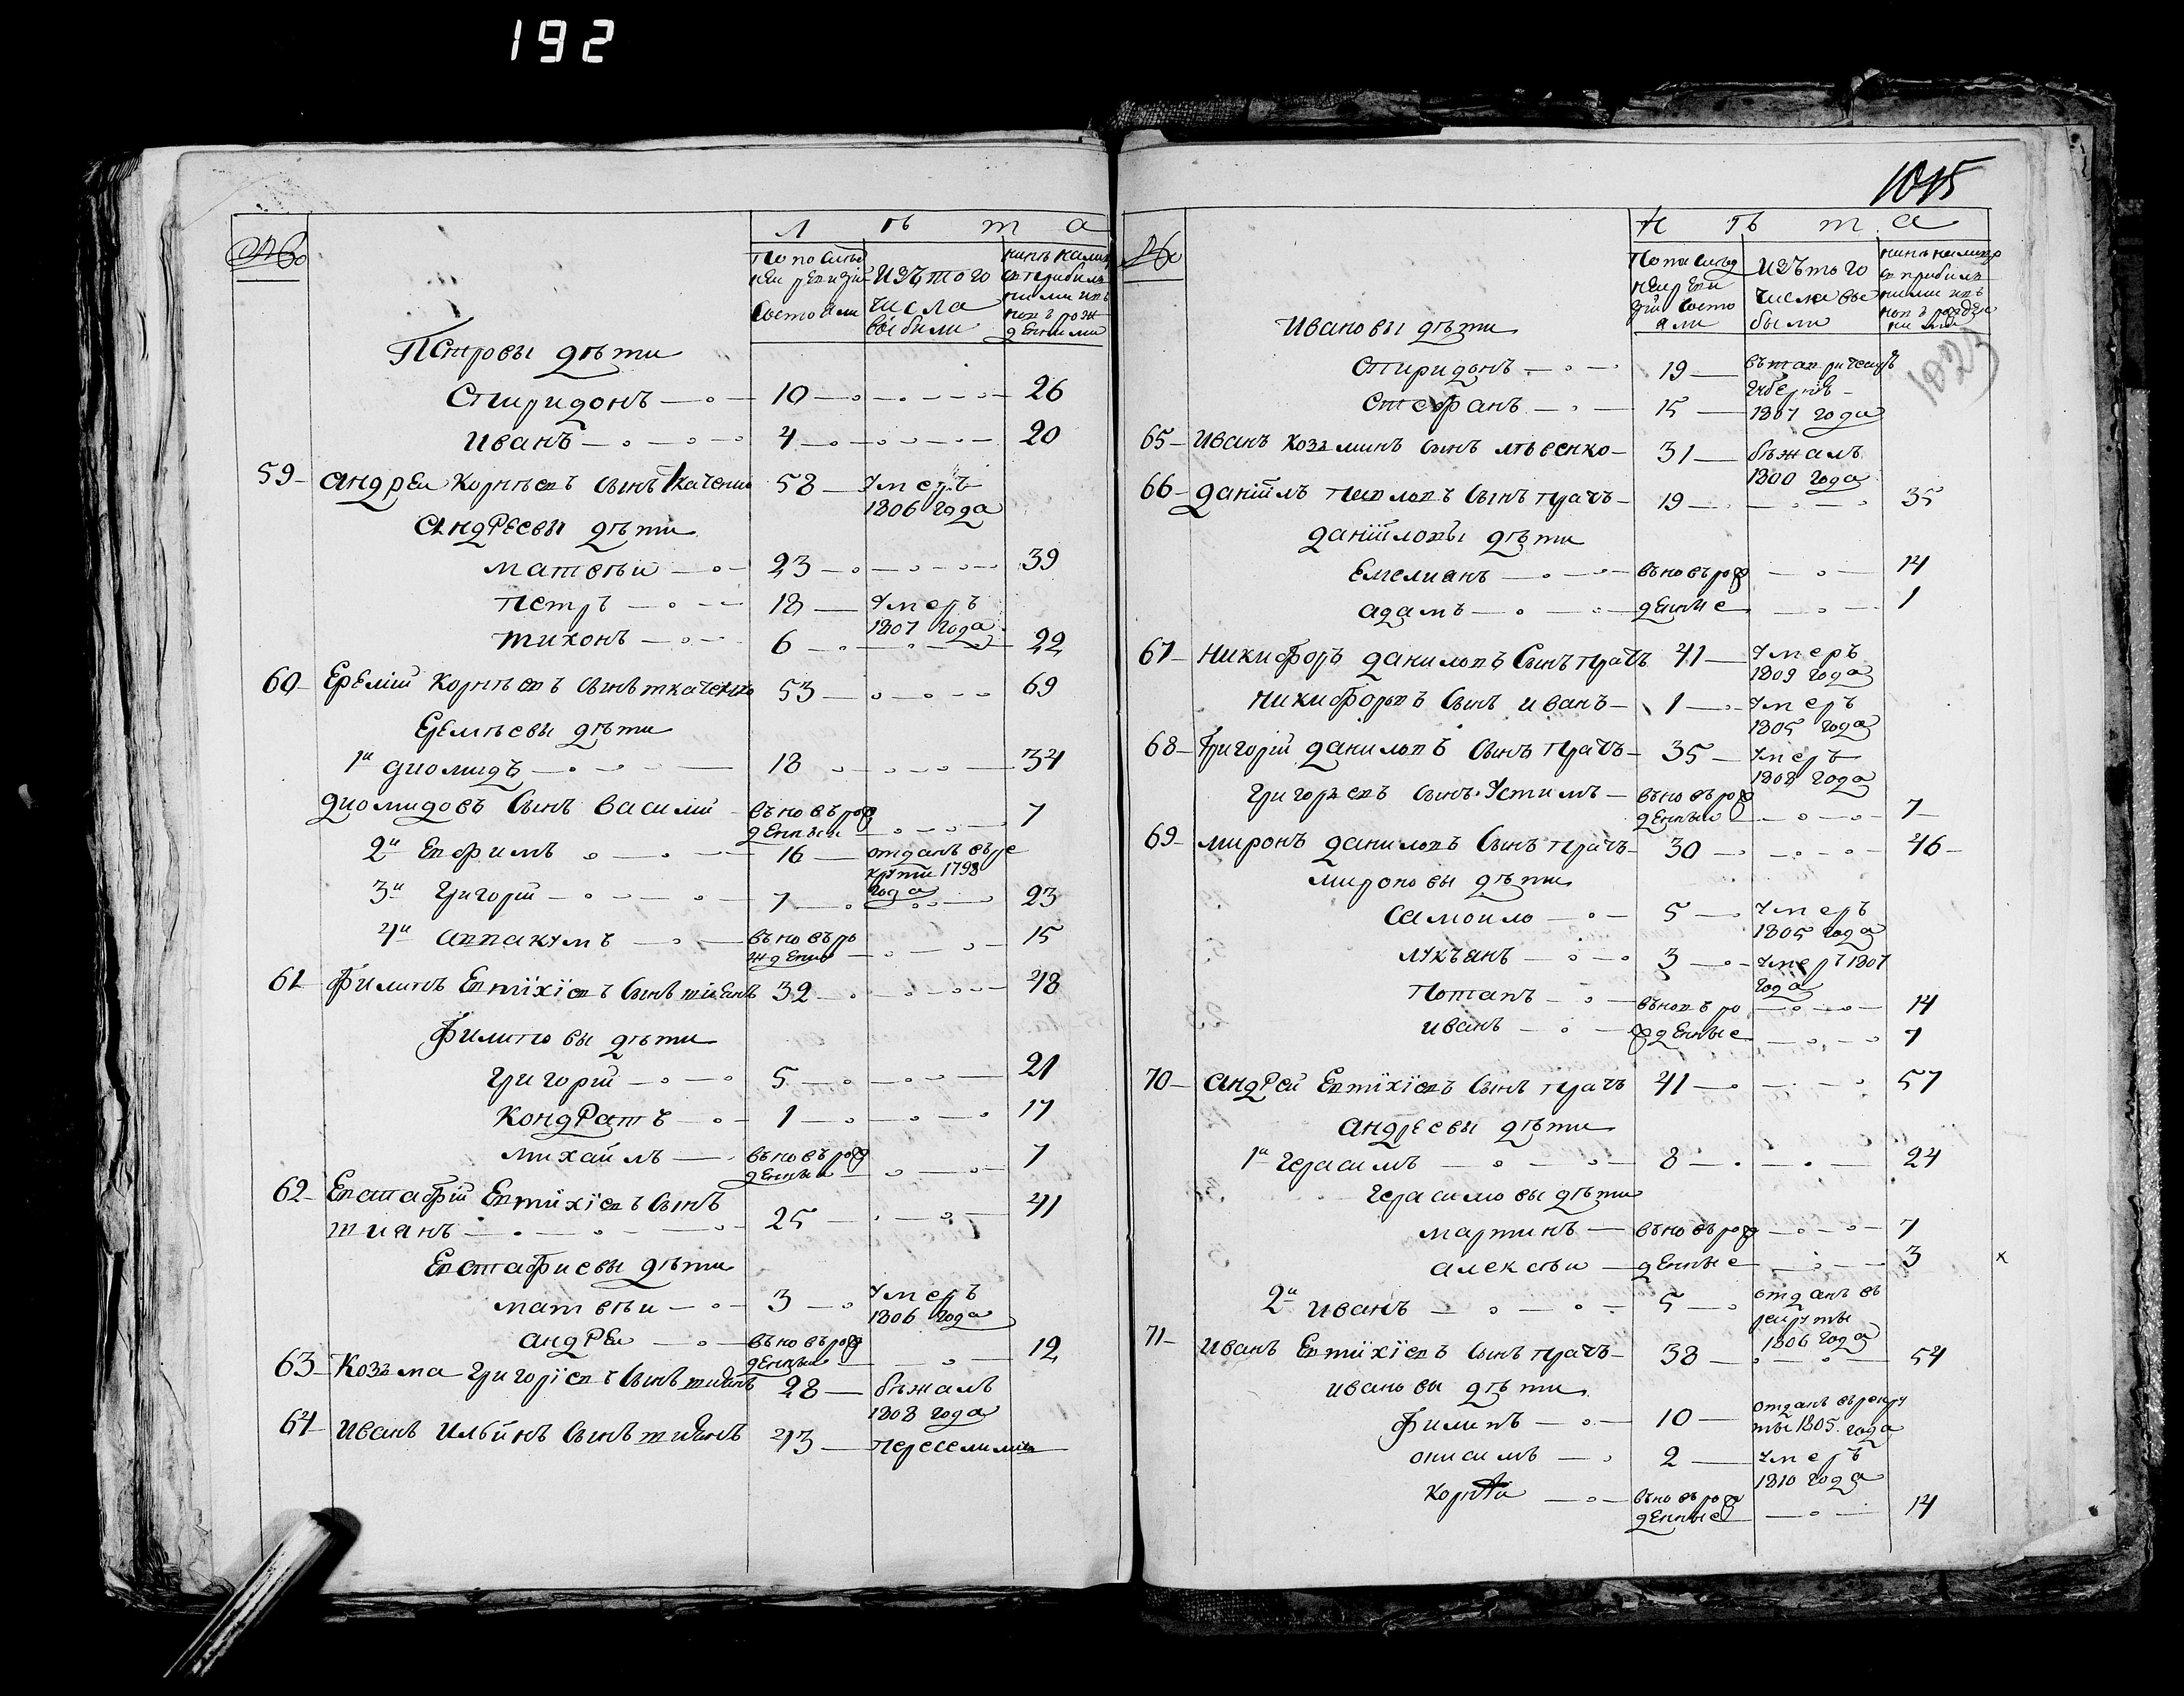 192
№
Л ѣ т а
По послѣд
ней ревизіи
состояли
изъ того
числа
выбыли
нынѣ на лицо
съ прибылы
ми и въ
новъ рож
денными
Петровы дѣти
Спиридонъ 10 26
Иванъ 4 20
59 Андрей Корнѣевъ сынъ Ткаченко 58 умеръ
1806 года
Андреевы дѣти
Матвѣй 23 39
Петръ 18 умеръ
1807 года
Тихонъ 6 22
60 Еремій Корнѣевъ сынъ Ткаченко 53 69
Еремѣевы дѣти
1й Диомидъ 18 34
Диомидовъ сынъ Василій въновърож
денный 7
2й Евфимъ 16 отданъ въ ре
круты 1798
года
3й Григорій 7 23
4й Аввакумъ въновъро
жденъ 15
61 Филипъ Евтихіевъ сынъ 32 48
Филиповы дѣти
Григорій 5 21
Кондратъ 1 17
Михайлъ въновърож
денный 7
62 Евстафій Евтихіевъ сынъ
Тианъ 25 41
Евстафиевы дѣти
Матвѣй 3 умеръ
1806 года
Андрей въновърож
денный 12
63 Козьма Григоріевъ сынъ 28 бѣжалъ
1808 года
64 Иванъ Ильинъ сынъ 43 переселились
1015
№
Л ѣ т а
По послѣд
ней реви
зіи состо
яли
изъ того
числа вы
были
нынѣ на лицо
съ прибылы
ми и въ
новъ рожде
ными
Ивановы дѣти
Спиридонъ 19 въ таврической
губерніи
Стефанъ 15 1807 года
65 Иванъ Козьминъ сынъ 31 бѣжалъ
1800 года
66 Даніилъ Павловъ сынъ Прачъ 19 35
Даніиловы дѣти
Емелианъ въновърож 14
Адамъ денные 1
67 Никифоръ Даниловъ сынъ Прачъ 41 умеръ
1809 года
Никифоровъ сынъ Иванъ 1 умеръ
1805 года
68 Григорій Даниловъ сынъ Прачъ 35 умеръ
1808 года
Григорьевъ сынъ Устимъ въновърож
денный 7
69 Миронъ Даниловъ сынъ Прачъ 30 46
Мироновы дѣти
Самоило 5 умеръ
1805 года
Лукьянъ 3 умеръ 1807
года
Потапъ въновъ ро 14
Иванъ жденные 7
70 Андрей Евтихіевъ сынъ Прачъ 41 57
Андреевы дѣти
1й Герасимъ 8 24
Герасимовы дѣти
Мартинъ въновърож 7
Алексѣй денные 3 х
2й Иванъ 5 отданъ въ
рекруты
1806 года
71 Иванъ Евтихіевъ сынъ Прачъ 38 54
Ивановы дѣти
Филипъ 10 отданъ въ рекру
ты 1805 года
Онисимъ 2 умеръ
1810 года
Корнѣй въновърож
денные 14